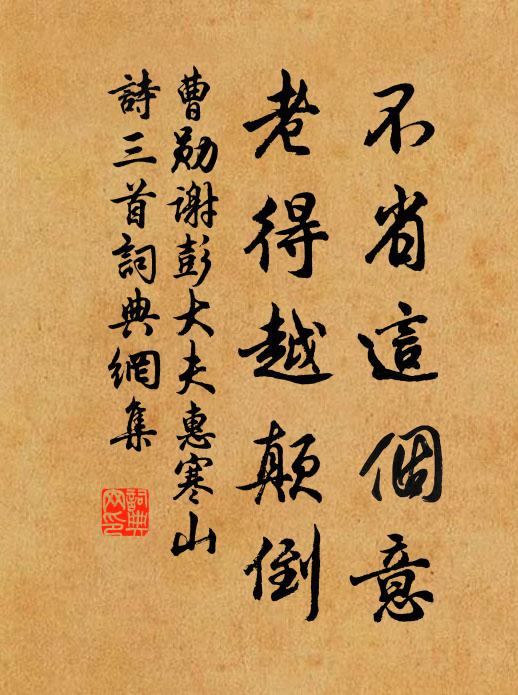 不省這個意
老得越顛倒
曹勛謝彭大夫惠寒山
詩三首詞典網集
詞典
网印